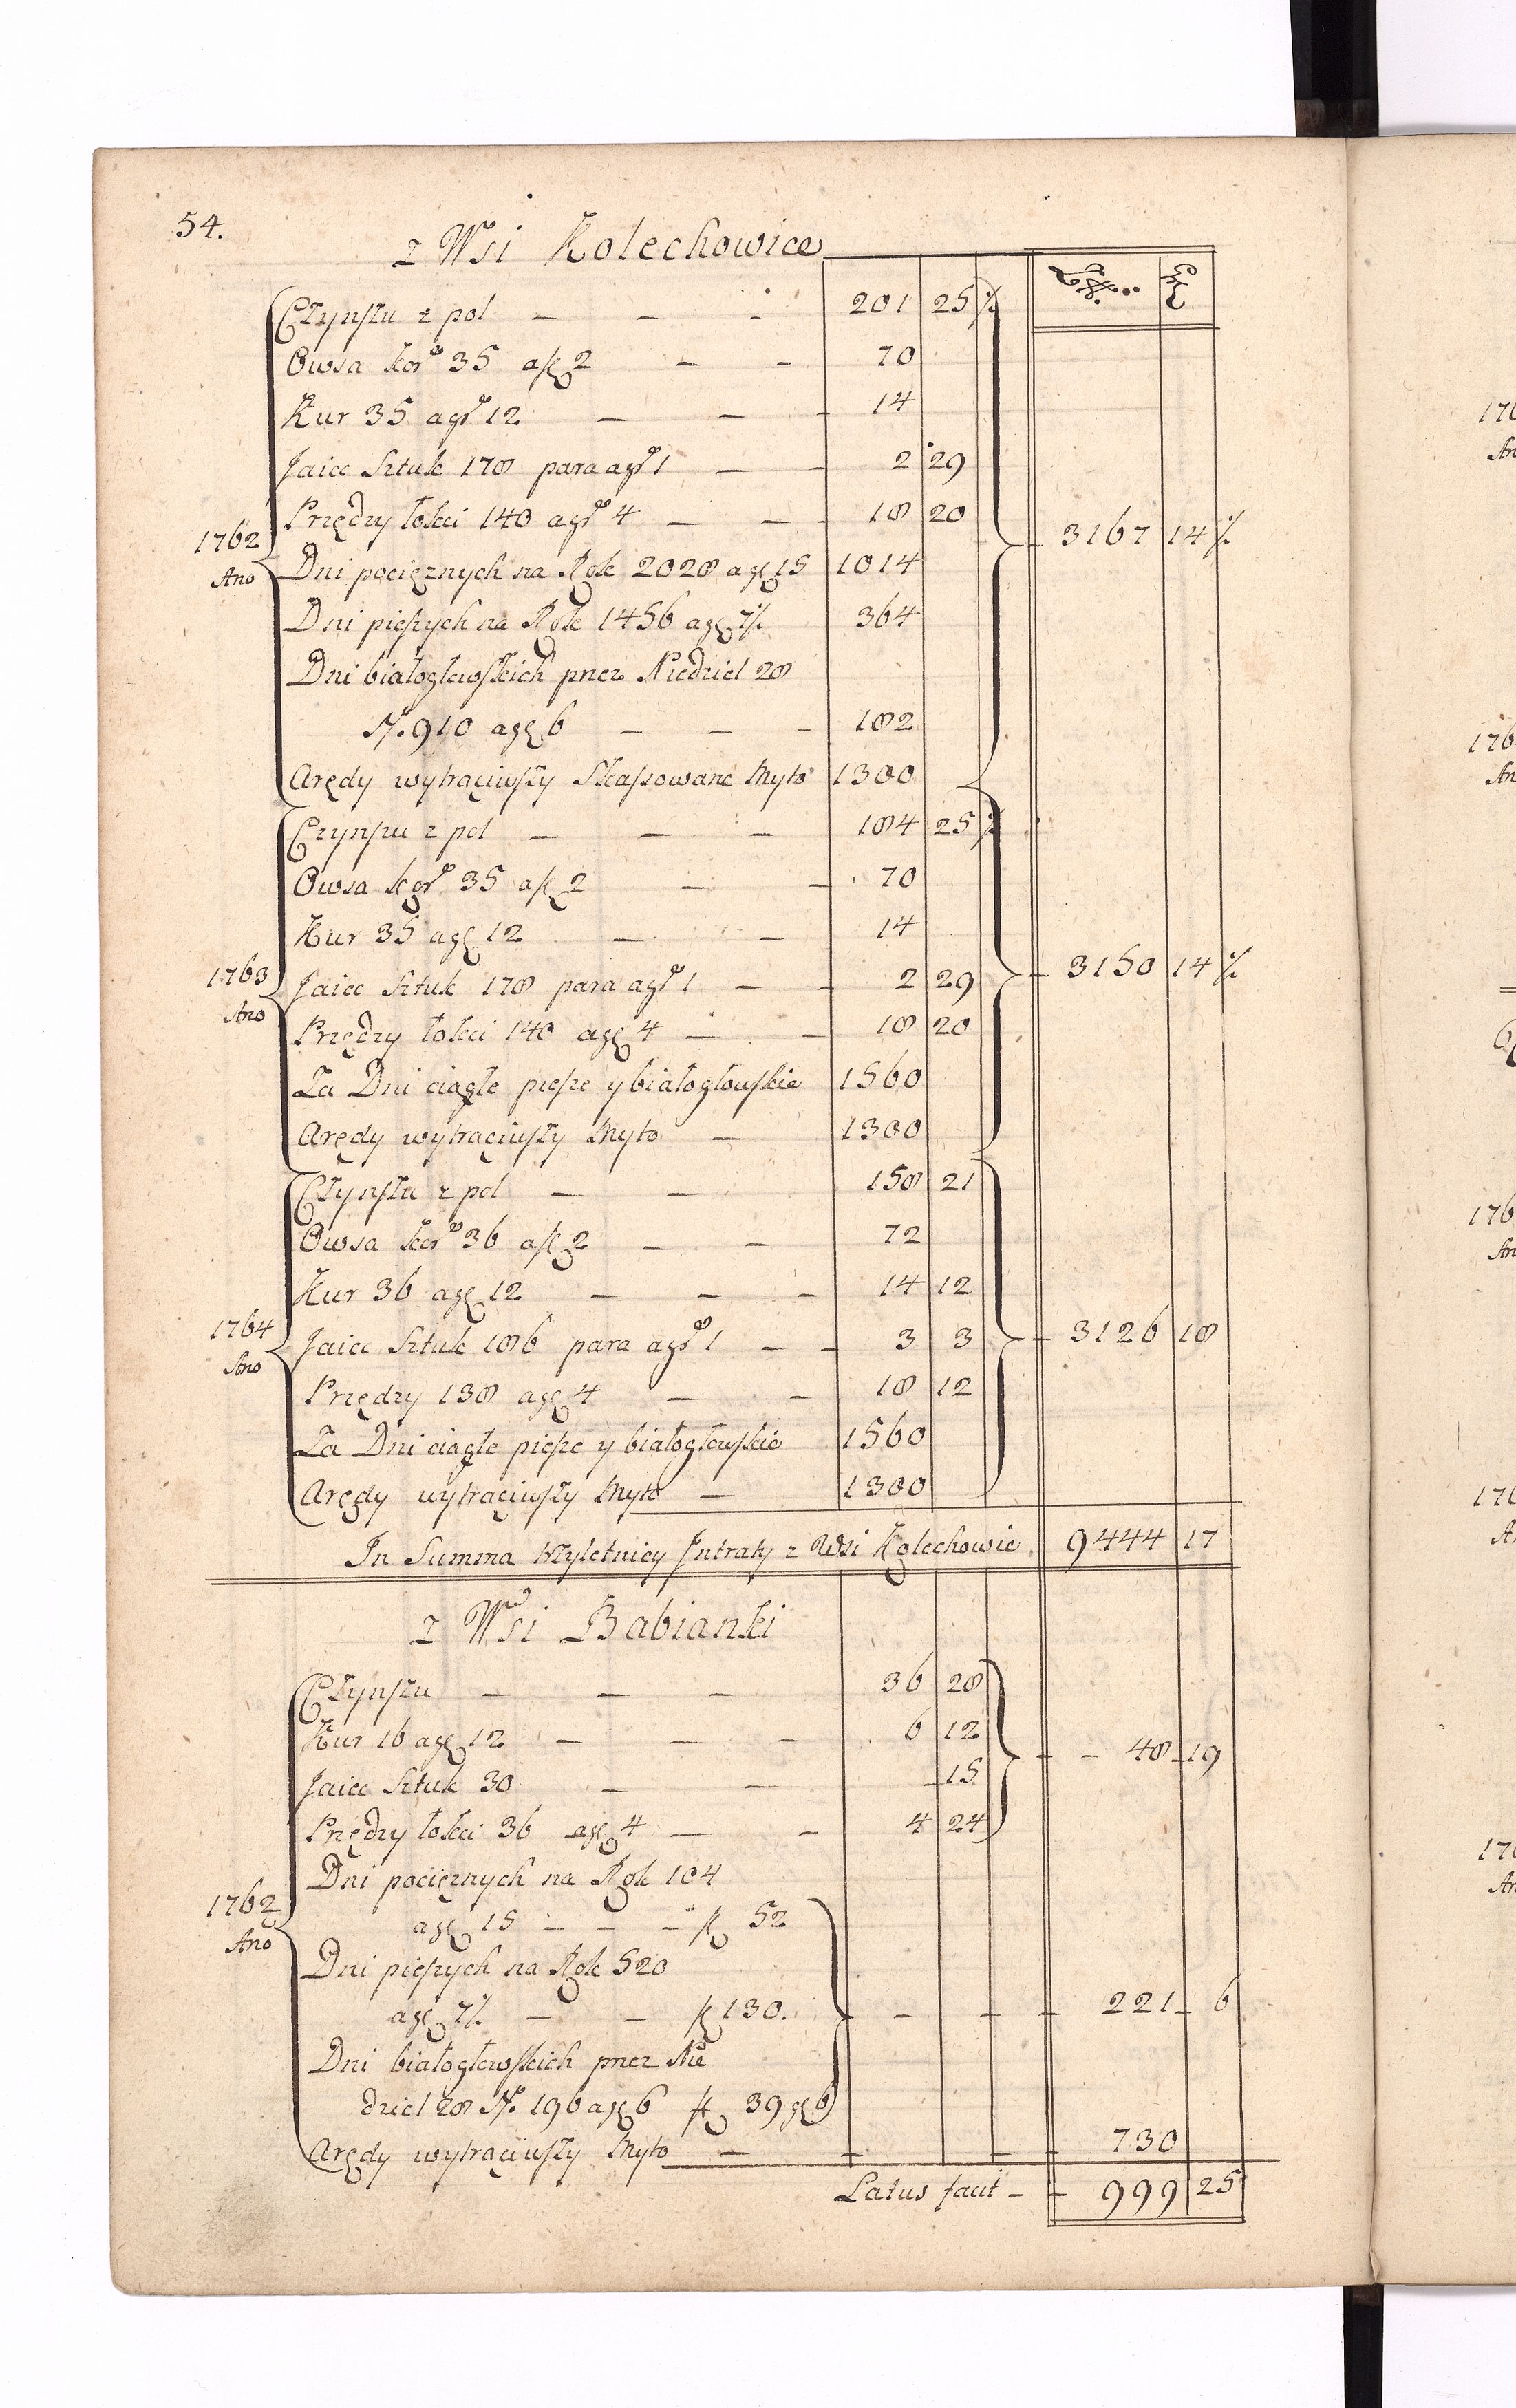 54.
z Wsi Kolechowice
Czynszu z pol — — — 201 25 ½
Owsa kor. 35 a fl 2 — — 70
Kur 35 a gr 12 — — 14
Jaiec Sztuk 178 para a gr 1 — — 2 29
Przędzy łokci 140 a gr 4 — — 18 20
1762 Ano 3167 14 ½
Dni pociężnych na Rok 2028 a gr 15 1014
Dni pieszych na Rok 1456 a gr 7½ 364
Dni białogłowskich przez Niedziel 28
N. 910 a gr 6 — — — 182
Arędy wytrąciwszy Skassowane Myto 1300
Czynszu z pol — — — 184 25 ½
Owsa kor 35 a fl 2 — — 70
Kur 35 a gr 12 — — 14
1763 Ano 3150 14 ½
Jaiec Sztuk 178 para a gr 1 — — 2 29
Przędzy łokci 140 a gr 4 — — 18 20
Za Dni ciągłe piesze y białogłowskie 1560
Arędy wytrąciwszy Myto — 1300
Czynszu z pol — — 158 21
Owsa kor 36 a fl 2 — — 72
Kur 36 a gr 12 — — — 14 12
1764 Ano 3126 18
Jaiec Sztuk 186 para a gr 1 — — 3 3
Przędzy 138 a gr 4 — — 18 12
Za Dni ciągłe piesze y białogłowskie 1560
Arędy wytrąciwszy Myto — 1300
In Summa trzyletniey Jntraty z Wsi Kolechowic 9444 17
z Wsi Babianki
Czynszu — — — 36 28
Kur 16 a gr 12 — — — 6 12
48 19
Jaiec Sztuk 30 — — 15
Przędzy łokci 36 a gr 4 — — 4 24
Dni pociężnych na Rok 104
1762 Ano
a gr 15 — — — fl 52
Dni pieszych na Rok 520
a gr 7½ — — fl 130. — — — 221 6
Dni białogłowskich przez Nie
dziel 28 N. 196 a gr 6 fl 39 gr 6
Arędy wytrąciwszy Myto — — — — 730
Latus facit — 999 25